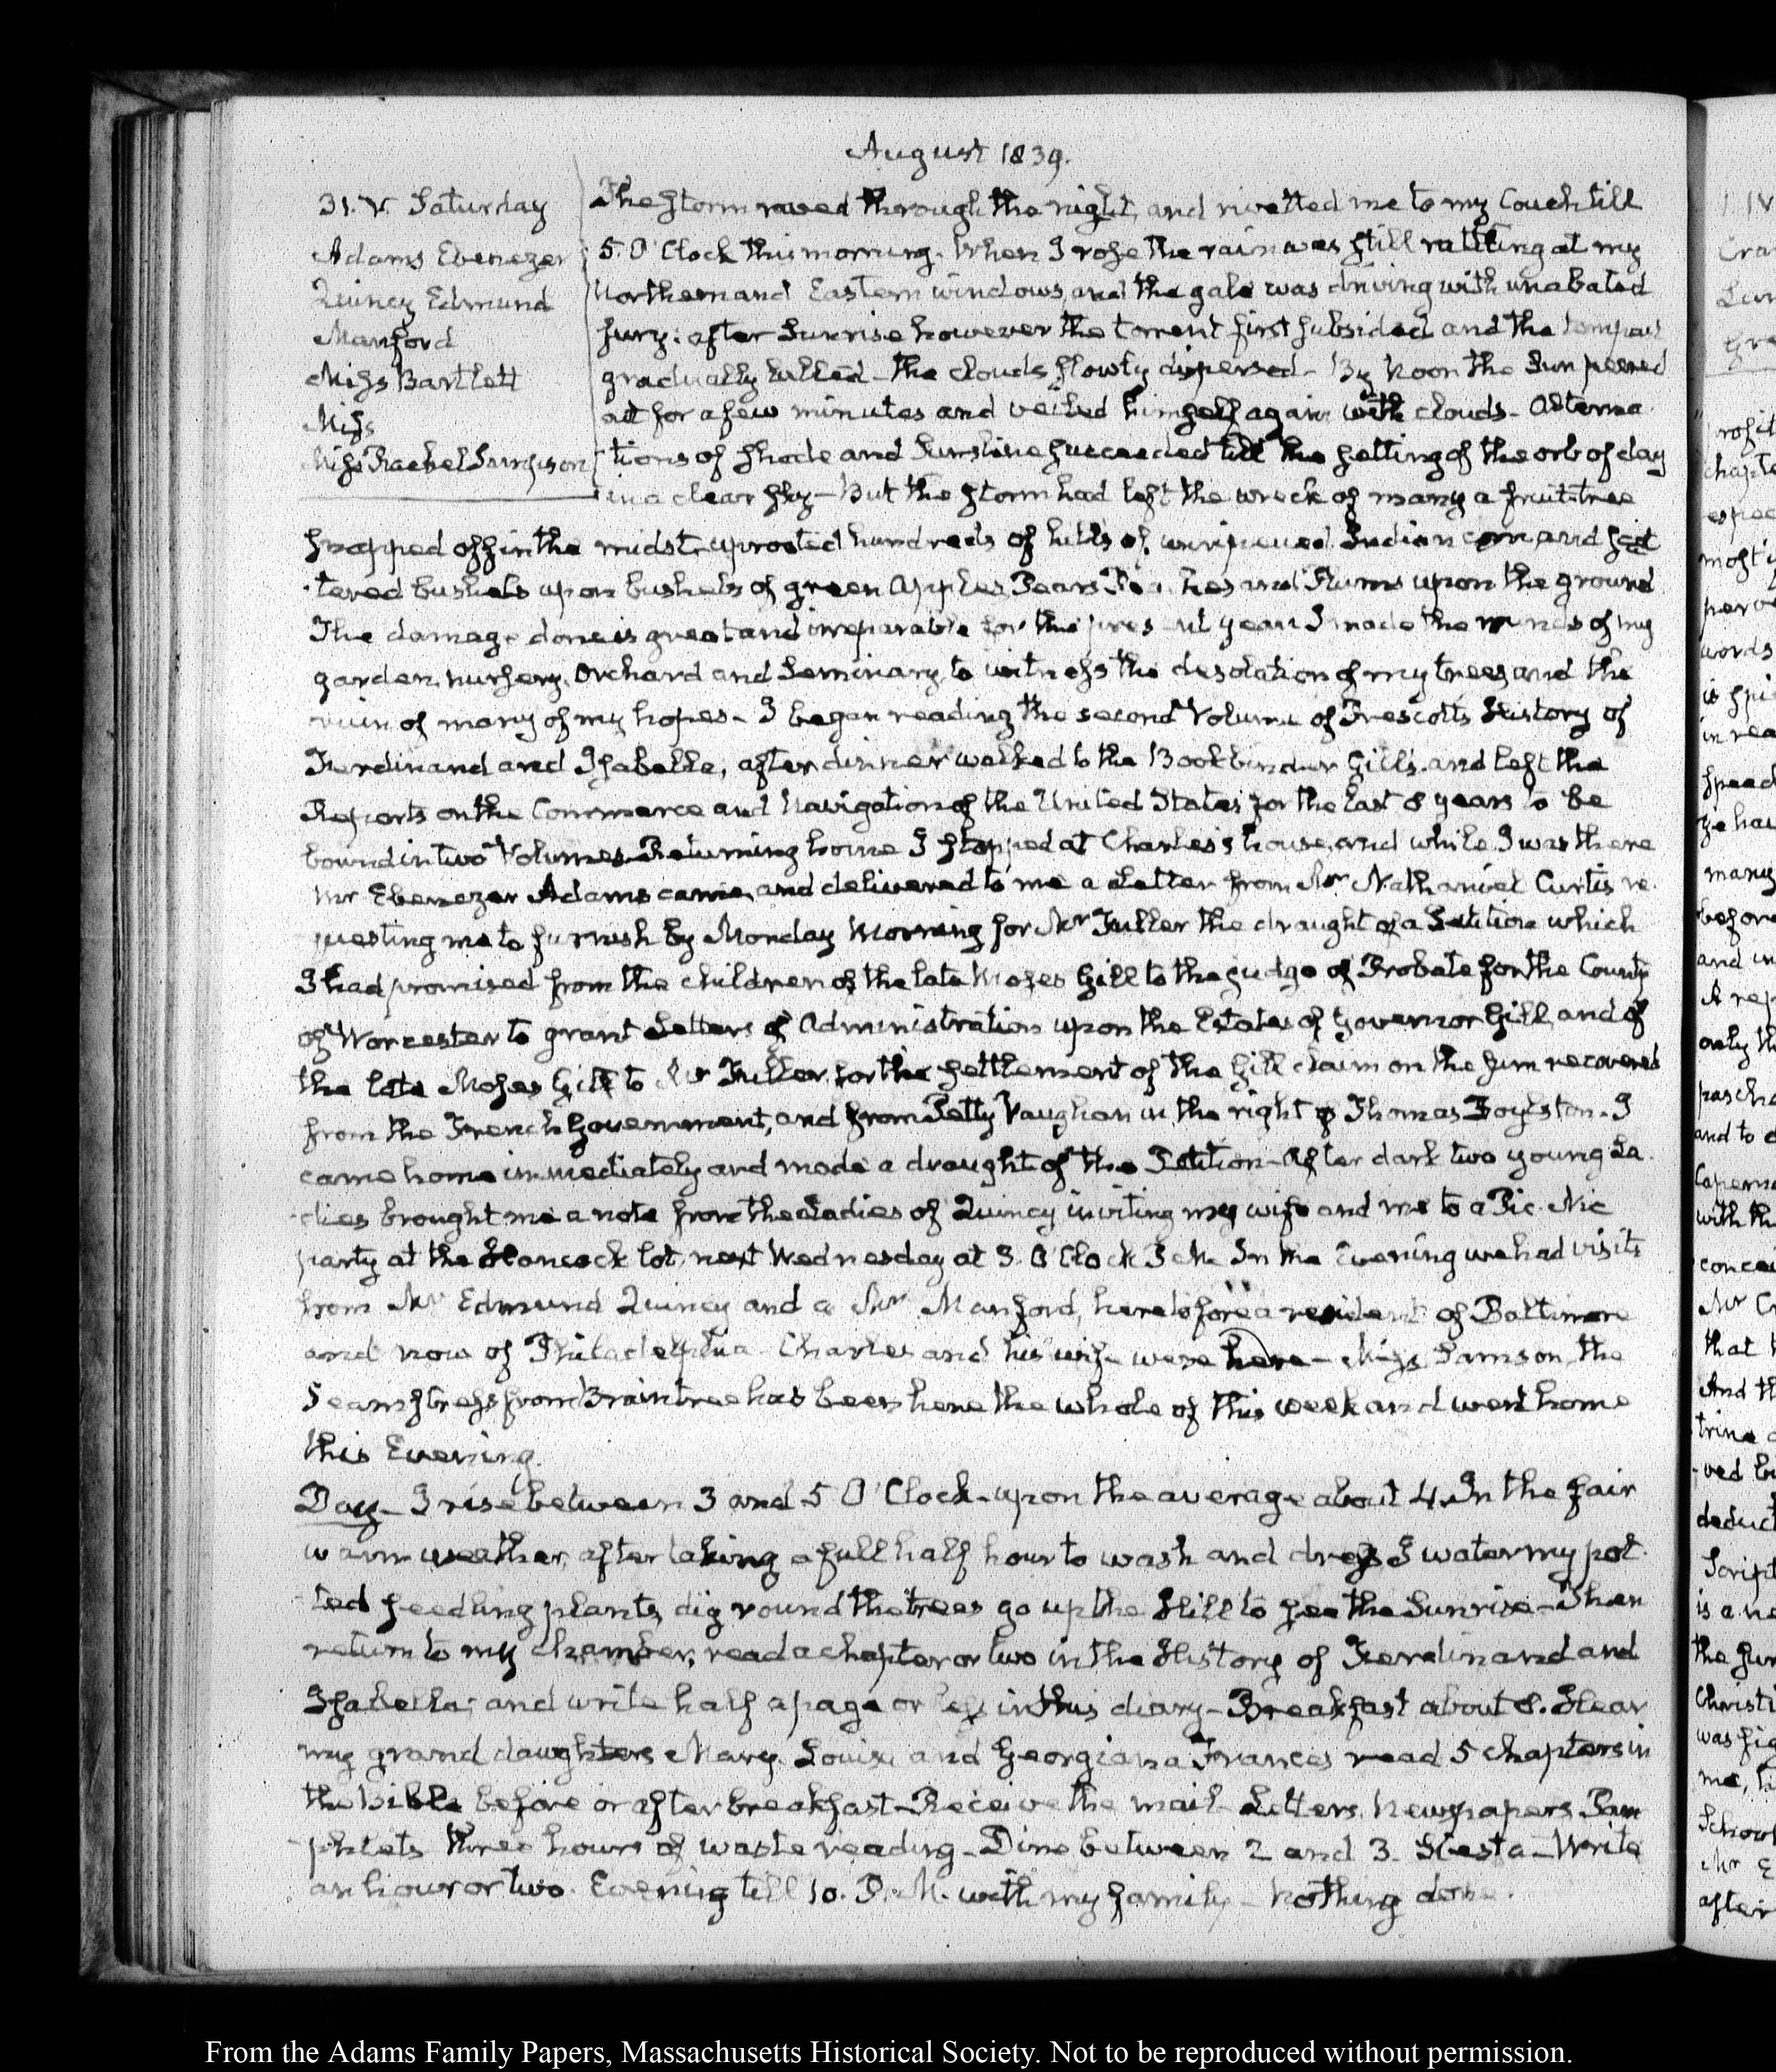 August 1839.
31. V. Saturday
Adams Ebenezer
Quincy Edmund
Manford
Miss Bartlett
Miss
Miss Rachel Sampson
The storm raved through the night, and rivetted me to my Couch till
5. O'Clock this morning. When I rose the rain was still rattling at my
Northern and Eastern windows, and the gale was driving with unabated
fury: after Sunrise however the torrent first subsided and the tempest
gradually lulled – the clouds slowly dispersed – By Noon the Sun peered
out for a few minutes and veiled himself again with clouds – Alterna
tions of shade and Sunshine succeeded till the setting of the orb of day
in a clear sky – But the storm had left the wreck of many a fruit tree
snapped off in the midst, uprooted hundreds of hills of unripened Indian corn, and scat
tered bushels upon bushels of green Apples Pears Peaches and Plums upon the ground
The damage done is great and irreparable for the present year I made the rounds of my
garden, nursery, Orchard and Seminary, to witness the desolation of my trees, and the
ruin of many of my hopes – I began reading the second Volume of Prescott's History of
Ferdinand and Isabella, after dinner walked to the Bookbinder Gill's, and left the
Reports on the Commerce and Navigation of the United States for the last 8 years to be
bound in two Volumes – Returning home I stopped at Charles's house, and while I was there
Mr Ebenezer Adams came, and delivered to me a Letter from Mr Nathaniel Curtis re
questing me to furnish by Monday Morning for Mr Fuller the draught of a Petition which
I had promised from the children of the late Moses Gill to the judge of Probate for the County
of Worcester to grant Letters of Administration upon the Estates of Governor Gill, and of
the late Moses Gill to Mr Fuller, for the settlement of the Gill claim on the sum recovered
from the French Government, and from Petty Vaughan in the right of Thomas Boylston. I
came home immediately and made a draught of the Petition – After dark two young La
dies brought me a note from the Ladies of Quincy inviting my wife and me to a Pic. Nic
party at the Hancock lot, next Wednesday at 3. O'Clock P. M. In the Evening we had visits
from Mr Edmund Quincy and a Mr Manford, heretofore a resident of Baltimore
and now of Philadelphia – Charles and his wife were here – Miss Samson, the
Seamstress from Braintree has been here the whole of this week and went home
this Evening.
Day – I rise between 3 and 5 O'Clock – upon the average about 4. In the fair
warm weather, after taking a full half hour to wash and dress I water my pot
ted seedling plants, dig round the trees go up the Hill to see the Sunrise – Then
return to my chamber, read a chapter or two in the History of Ferdinand and
Isabella; and write half a page or less in this diary – Breakfast about 8. Hear
my grand daughters Mary Louisa and Georgiana Frances read 5 chapters in
the Bible before or after breakfast – Receive the mail – Letters, Newspapers, Pam
phlets three hours of waste reading – Dine between 2 and 3. Siesta – Write
an hour or two. Evening till 10. P. M. with my family – Nothing done.
From the Adams Family Papers, Massachusetts Historical Society. Not to be reproduced without permission.